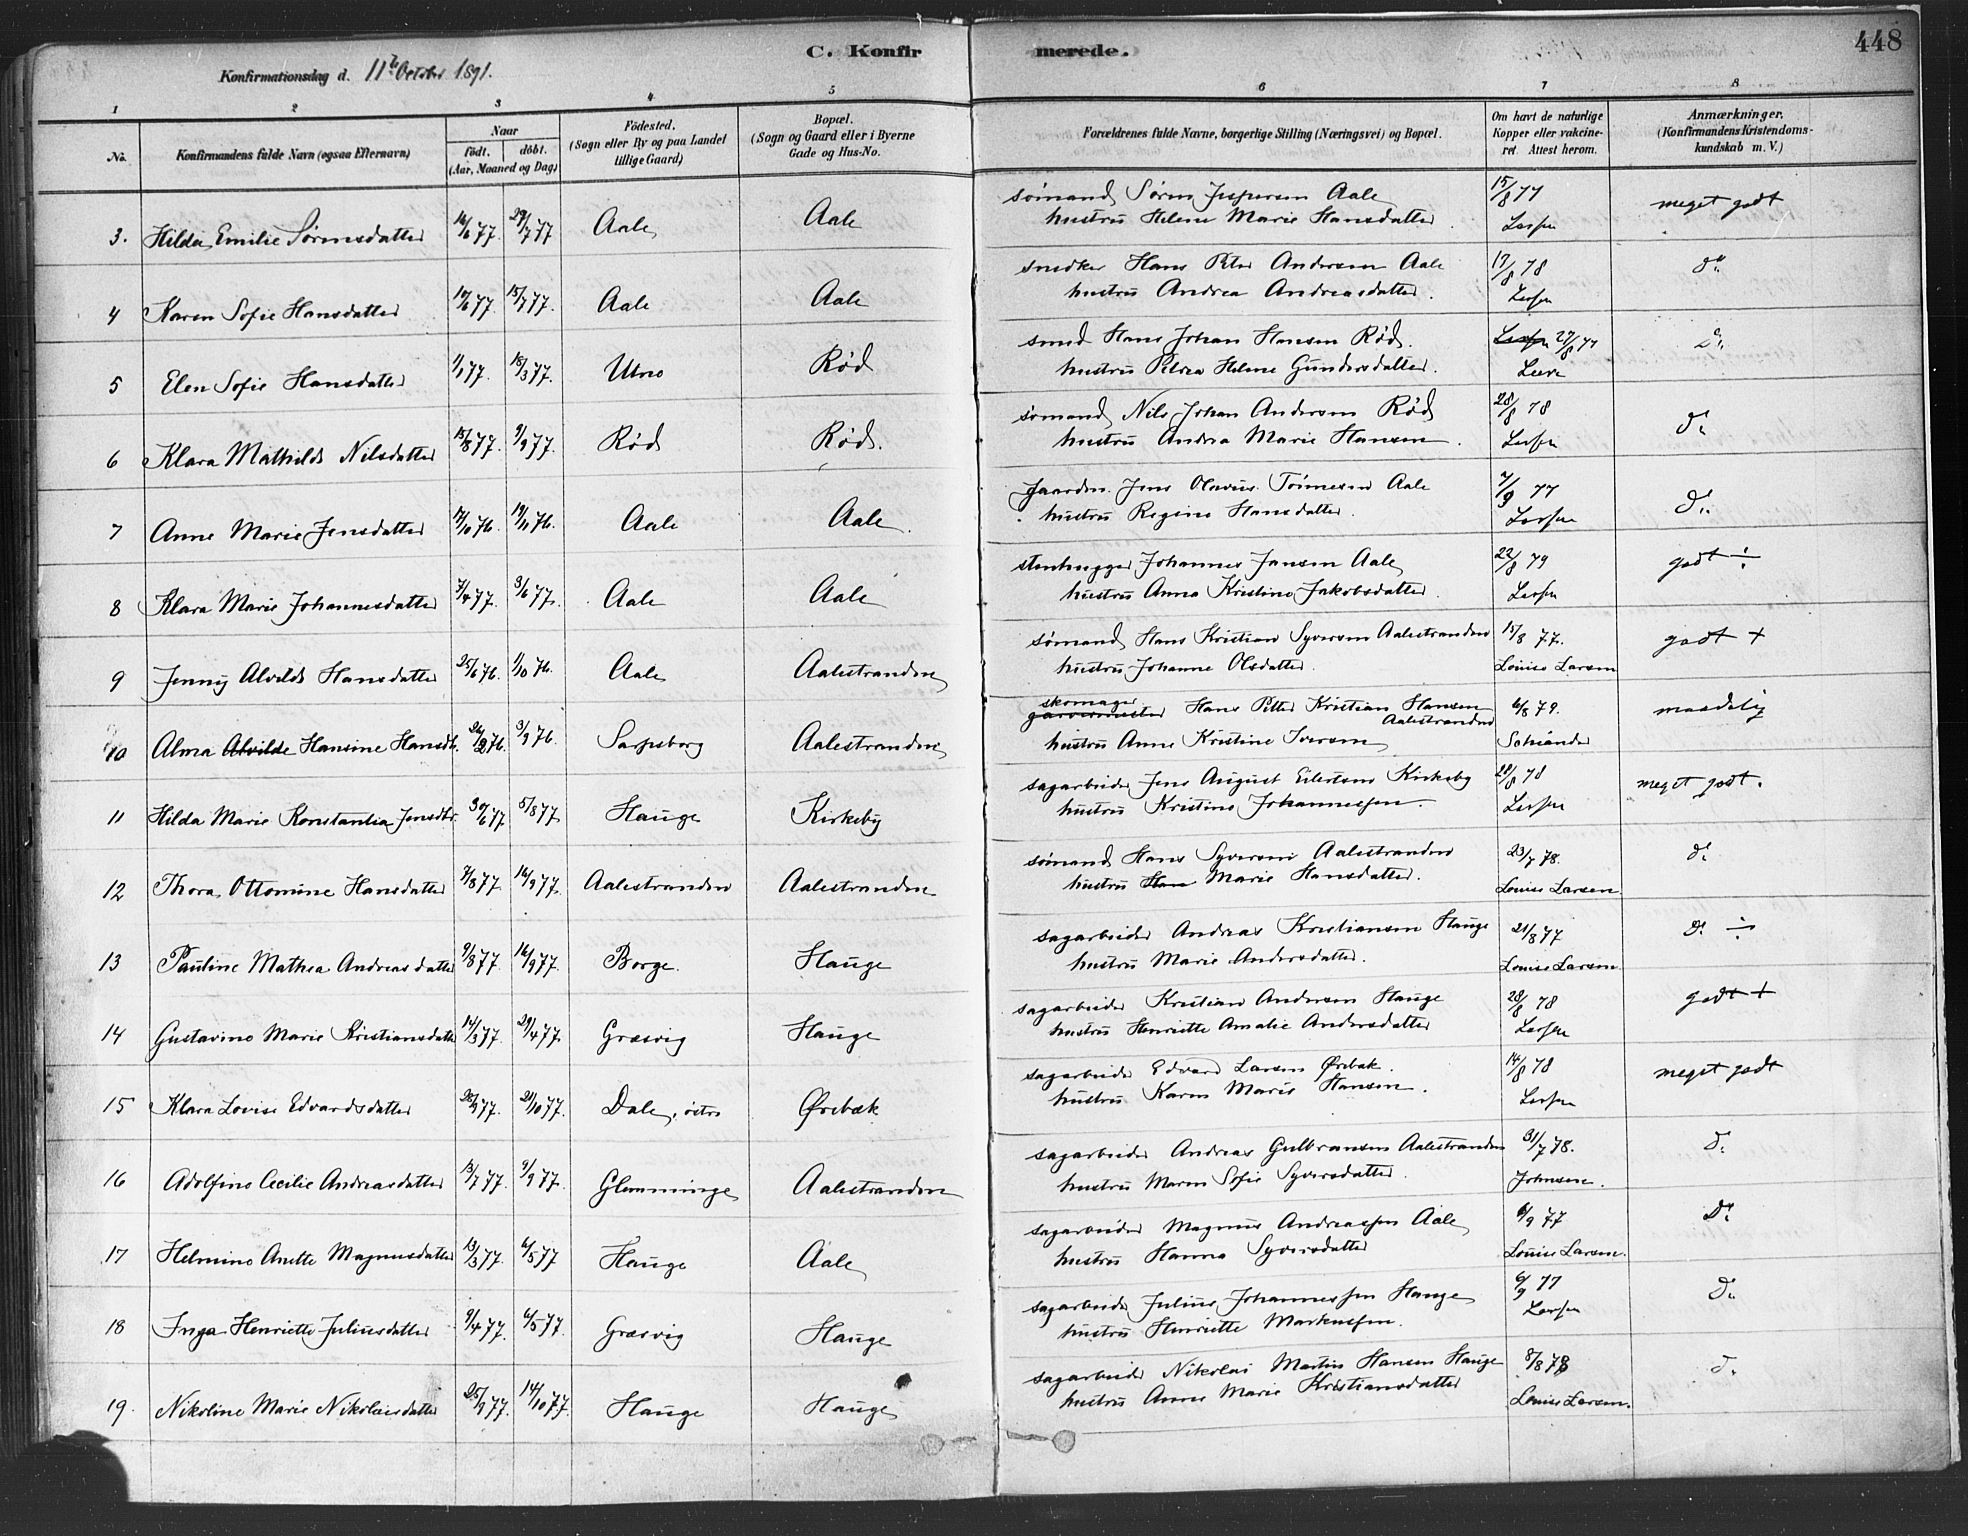 C. Konfirmerede.
448
Konfirmationsdag d. 11te October 1891.
1 2 3 4 5 6 7 8
No.
Konfirmandens fulde Navn (ogsaa Efternavn)
Naar
født. døbt.
(Aar, Maaned og Dag)
Fødested.
(Sogn eller By og paa Landet
tillige Gaard)
Bopæl.
(Sogn og Gaard eller i Byerne
Gade og Hus-No.
Forældrenes fulde Navne, borgerlige Stilling (Næringsvei) og Bopæl.
Om havt de naturlige
Kopper eller vakcine-
ret. Attest herom.
Anmærkninger.
(Konfirmandens Kristendoms-
kundskab m. V.)
3. Hilda Emilie Sørensdatter 16/6 77. 29/7 77 Aale Aale sømand Søren Jespersen Aale 15/8 77 meget godt
hustru Helene Marie Hansdatter
4 Karen Sofie Hansdatter 10/6 77. 15/7 77. Aale Aale snedker Hans Peter Andersen Aale 17/8 78 do
hustru Andrea Andreasdatter.
5 Elen Sofie Hansdatter 1/1 77. 18/3 77. Utne Rød smed Hans Johan Hansen Rød. 27/8 77 do
hustru Petrea Helene Gundersdatter.
6 Klara Mathilde Nilsdatter 15/8 77. 9/9 77. Rød Rød. sømand Nils Johan Andersen Rød 28/8 78 do
hustru Andrea Marie Hansen.
7 Anne Marie Jensdatter 17/10 76. 19/11 76. Aale Aale. gaardm. Jens Olavus Tønnesen Aale 7/9 77 do
hustru Regine Hansdatter.
8 Klara Marie Johannesdatter 7/4 77. 3/6 77. Aale Aale stenhugger Johannes Jansen Aale 22/8 79 godt ÷
hustru Anna Kristine Jakobsdatter.
9 Jenny Alvilde Hansdatter 25/6 76. 1/10 76. Aale Aalestranden sømand Hans Kristian Syversen Aalestranden 15/8 77. godt +
hustru Johanne Olsdatter. Louise Larsen
10 Alma Alvilde Hansine Hansdt. 3/9 76. Sarpsborg Aalestranden skomager garvermester Hans Petter Kristian Hansen 6/8 79. maadelig
Aalestranden
hustru Anne Kristine Iversen Schiander
11 Hilda Marie Konstantia Jensdtr. 30/6 77 5/8 77 Hauge Kirkeby sagarbeider Jens August Eilertsen Kirkeby 28/8 78 meget godt.
hustru Kristine Johannessen.
12 Thora Ottomine Hansdatter 7/8 77 16/9 77. Aalestranden Aalestranden sømand Hans Syversen Aalestranden 23/7 78. do
hustru Han Marie Hansdatter. Louise Larsen
13 Pauline Mathea Andreasdatter 9/8 77 16/9 77. Borge. Hauge sagarbeider Andreas Kristiansen Hauge 21/8 77 do ÷
hustru Marie Andersdatter. Louise Larsen
14 Gustavine Marie Kristiansdatter 14/3 77. 29/4 77. Græsvig Hauge sagarbeider Kristian Andersen Hauge 28/8 78 godt +
hustru Henriette Amalie Andersdatter
15 Klara Lovise Edvardsdatter 28/9 77. 21/10 77. Dale, østre Ørebæk sagarbeider Edvard Larsen Ørebæk. 14/8 78 meget godt
hustru Karen Marie Hansen.
16 Adolfine Cecilie Andreasdatter 13/7 77. 9/9 77. Glemminge Aalestranden sagarbeider Andreas Gulbransen Aalestranden 31/7 78. do
hustru Maren Sofie Syversdatter. Johnsen.
17 Helmine Anette Magnusdatter 13/3 77. 6/5 77 Hauge Aale sagarbeider Magnus Andreassen Aale 6/9 77 Do
hustru Hanna Syversdatter Louise Larsen.
18 Inga Henriette Juliusdatter 9/4 77. 6/5 77. Græsvig Hauge sagarbeider Julius Johannessen Hauge 6/9 77 do
hustru Henriette Markussen.
19. Nikoline Marie Nikolaisdatter 25/9 77. 14/10 77. Hauge Hauge sagarbeider Nikolai Martin Hansen Hauge 8/8 78 do
hustru Anne Marie Kristiansdatter Louise Larsen.